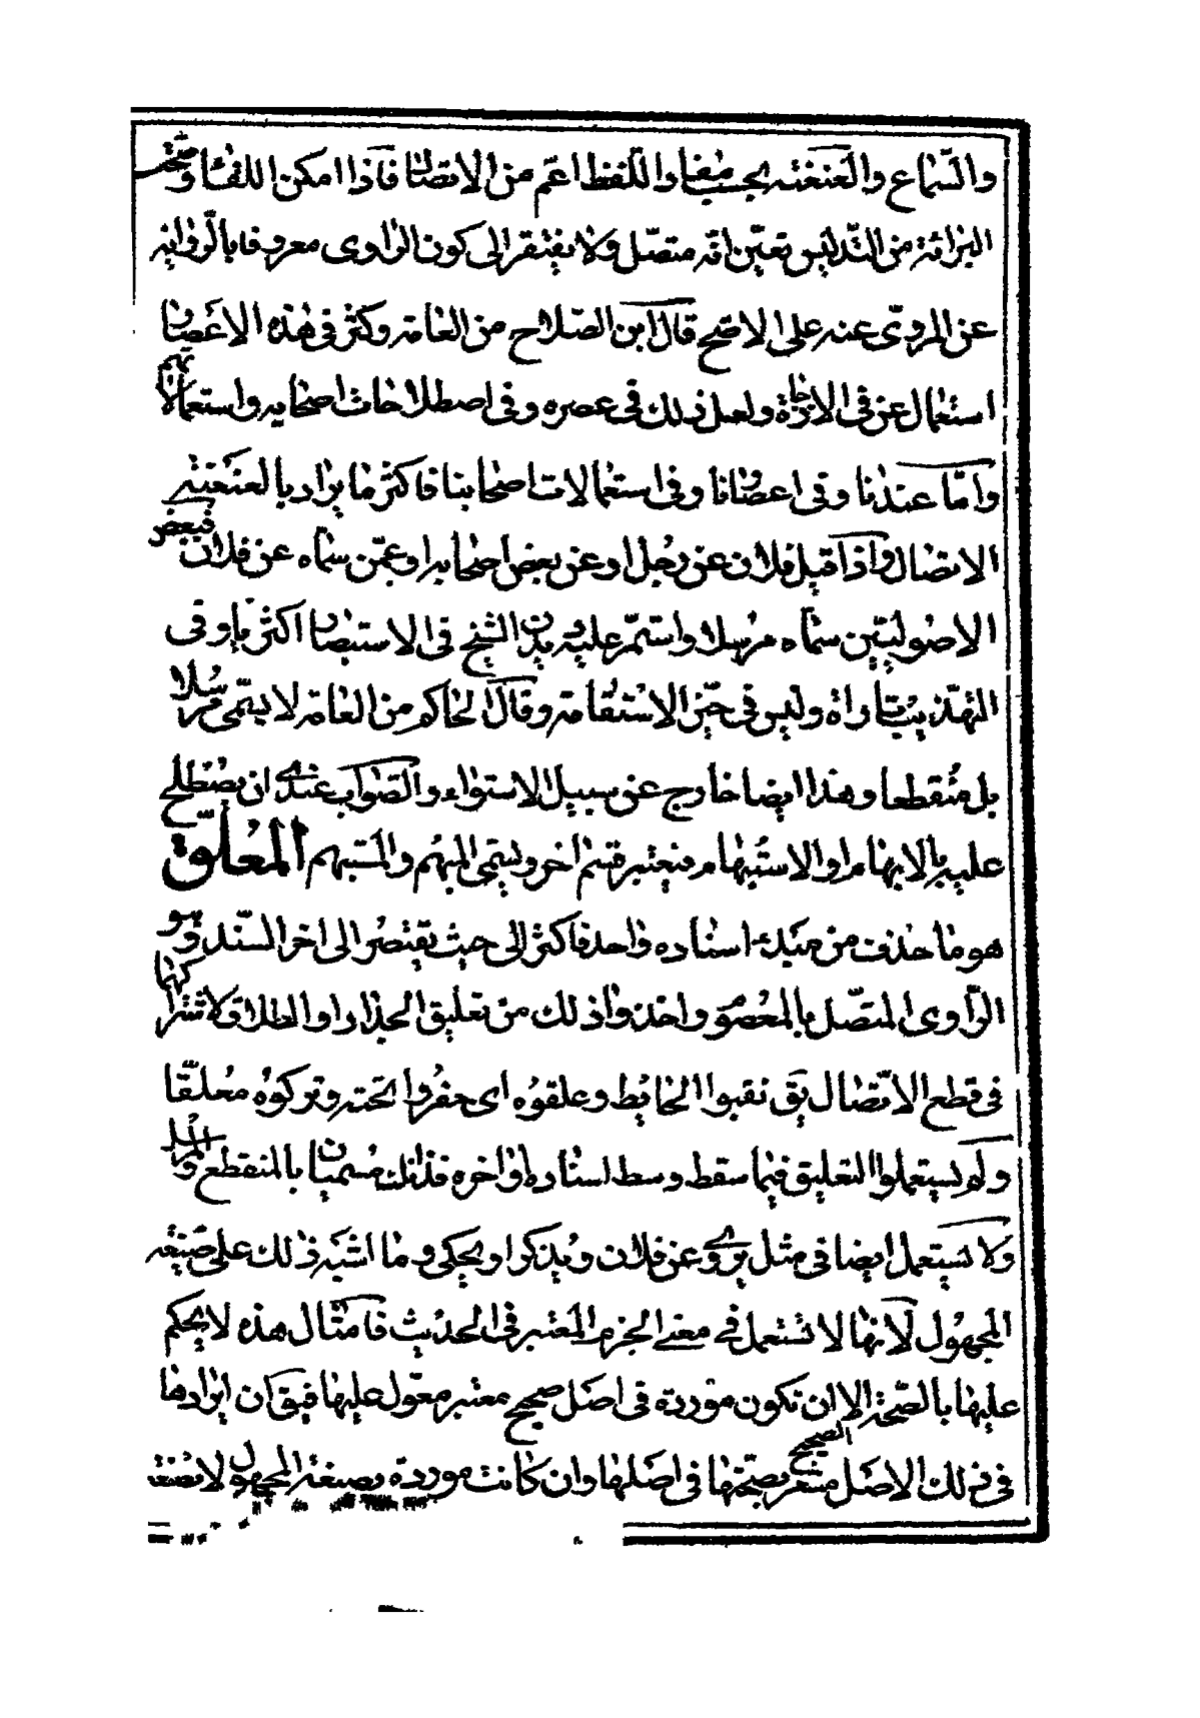 والسّماع والعنعنه بحسب مفاد اللّفظ اعمّ من الاتصال فاذا امكن اللقاء وصحّت
البرائة من التّدليس تعيّن انّه متصّل ولا يفتقر الى كون الراوى معروفا بالرّوايه
عن المروىّ عنه على الاصّح قال ابن الصّلاح من العامّه وكثر فى هذه الاعصار
استعمال عن فى الاجازة ولعل ذلك فى عصره وفى اصطلاحات اصحابه واستعمالاتهم
وامّا عندنا وفى اعصارنا وفى استعمالات اصحابنا فاكثر ما يراد بالعنعنه
الاتصال واذا قيل فلان عن رجل او عن بعض اصحابه او عمّن سمّاه عن فلان فبعض
الاصوليّين سمّاه مرسلا واستمّر عليه ديدن الشيخ فى الاستبصار اكثريا وفى
التهذيب تارة وليس فى حيّز الاستقامة وقال الحاكم من العامّه لا يسمّى مرسلا
بل منقطعا وهذا ايضا خارج عن سبيل الاستواء والصّواب عندى ان يصطلح
عليه بالابهام او الاستبهام فيعتبر قسم اخر ويسمّى المبهم والمستبهم المعلّق
هو ما حذف من مبدء اسناده واحد فاكثر الى حيث يقتصر الى اخر السّند وهو
الرّاوى المتصّل بالمعصوم واخذوا ذلك من تعليق الجدار او الطلاق لاشتراكهما
فى قطع الاتّصال يق نقبوا الحائط وعلقوه اى حفروا تحته وتركوه معلّقا
ولم يستعملوا التعليق فيما سقط وسط اسناده او اخره فذانك مسميان بالمنقطع والمرسل
ولا يستعمل ايضا فى مثل يروى عن فلان ويذكر او يحكى وما اشبه ذلك على صيغه
المجهول لانها لا تستعمل فى معنى الجزم المعتبر فى الحديث فامثال هذه لا يحكم
عليها بالصّحة الا ان تكون موردة فى اصل صحيح معتبر معّول عليها فيق ان ايرادها
فى ذلك الاصل الصحيح مشعر بصّحتها فى اصلها وان كانت موردة بصيغة المجهول